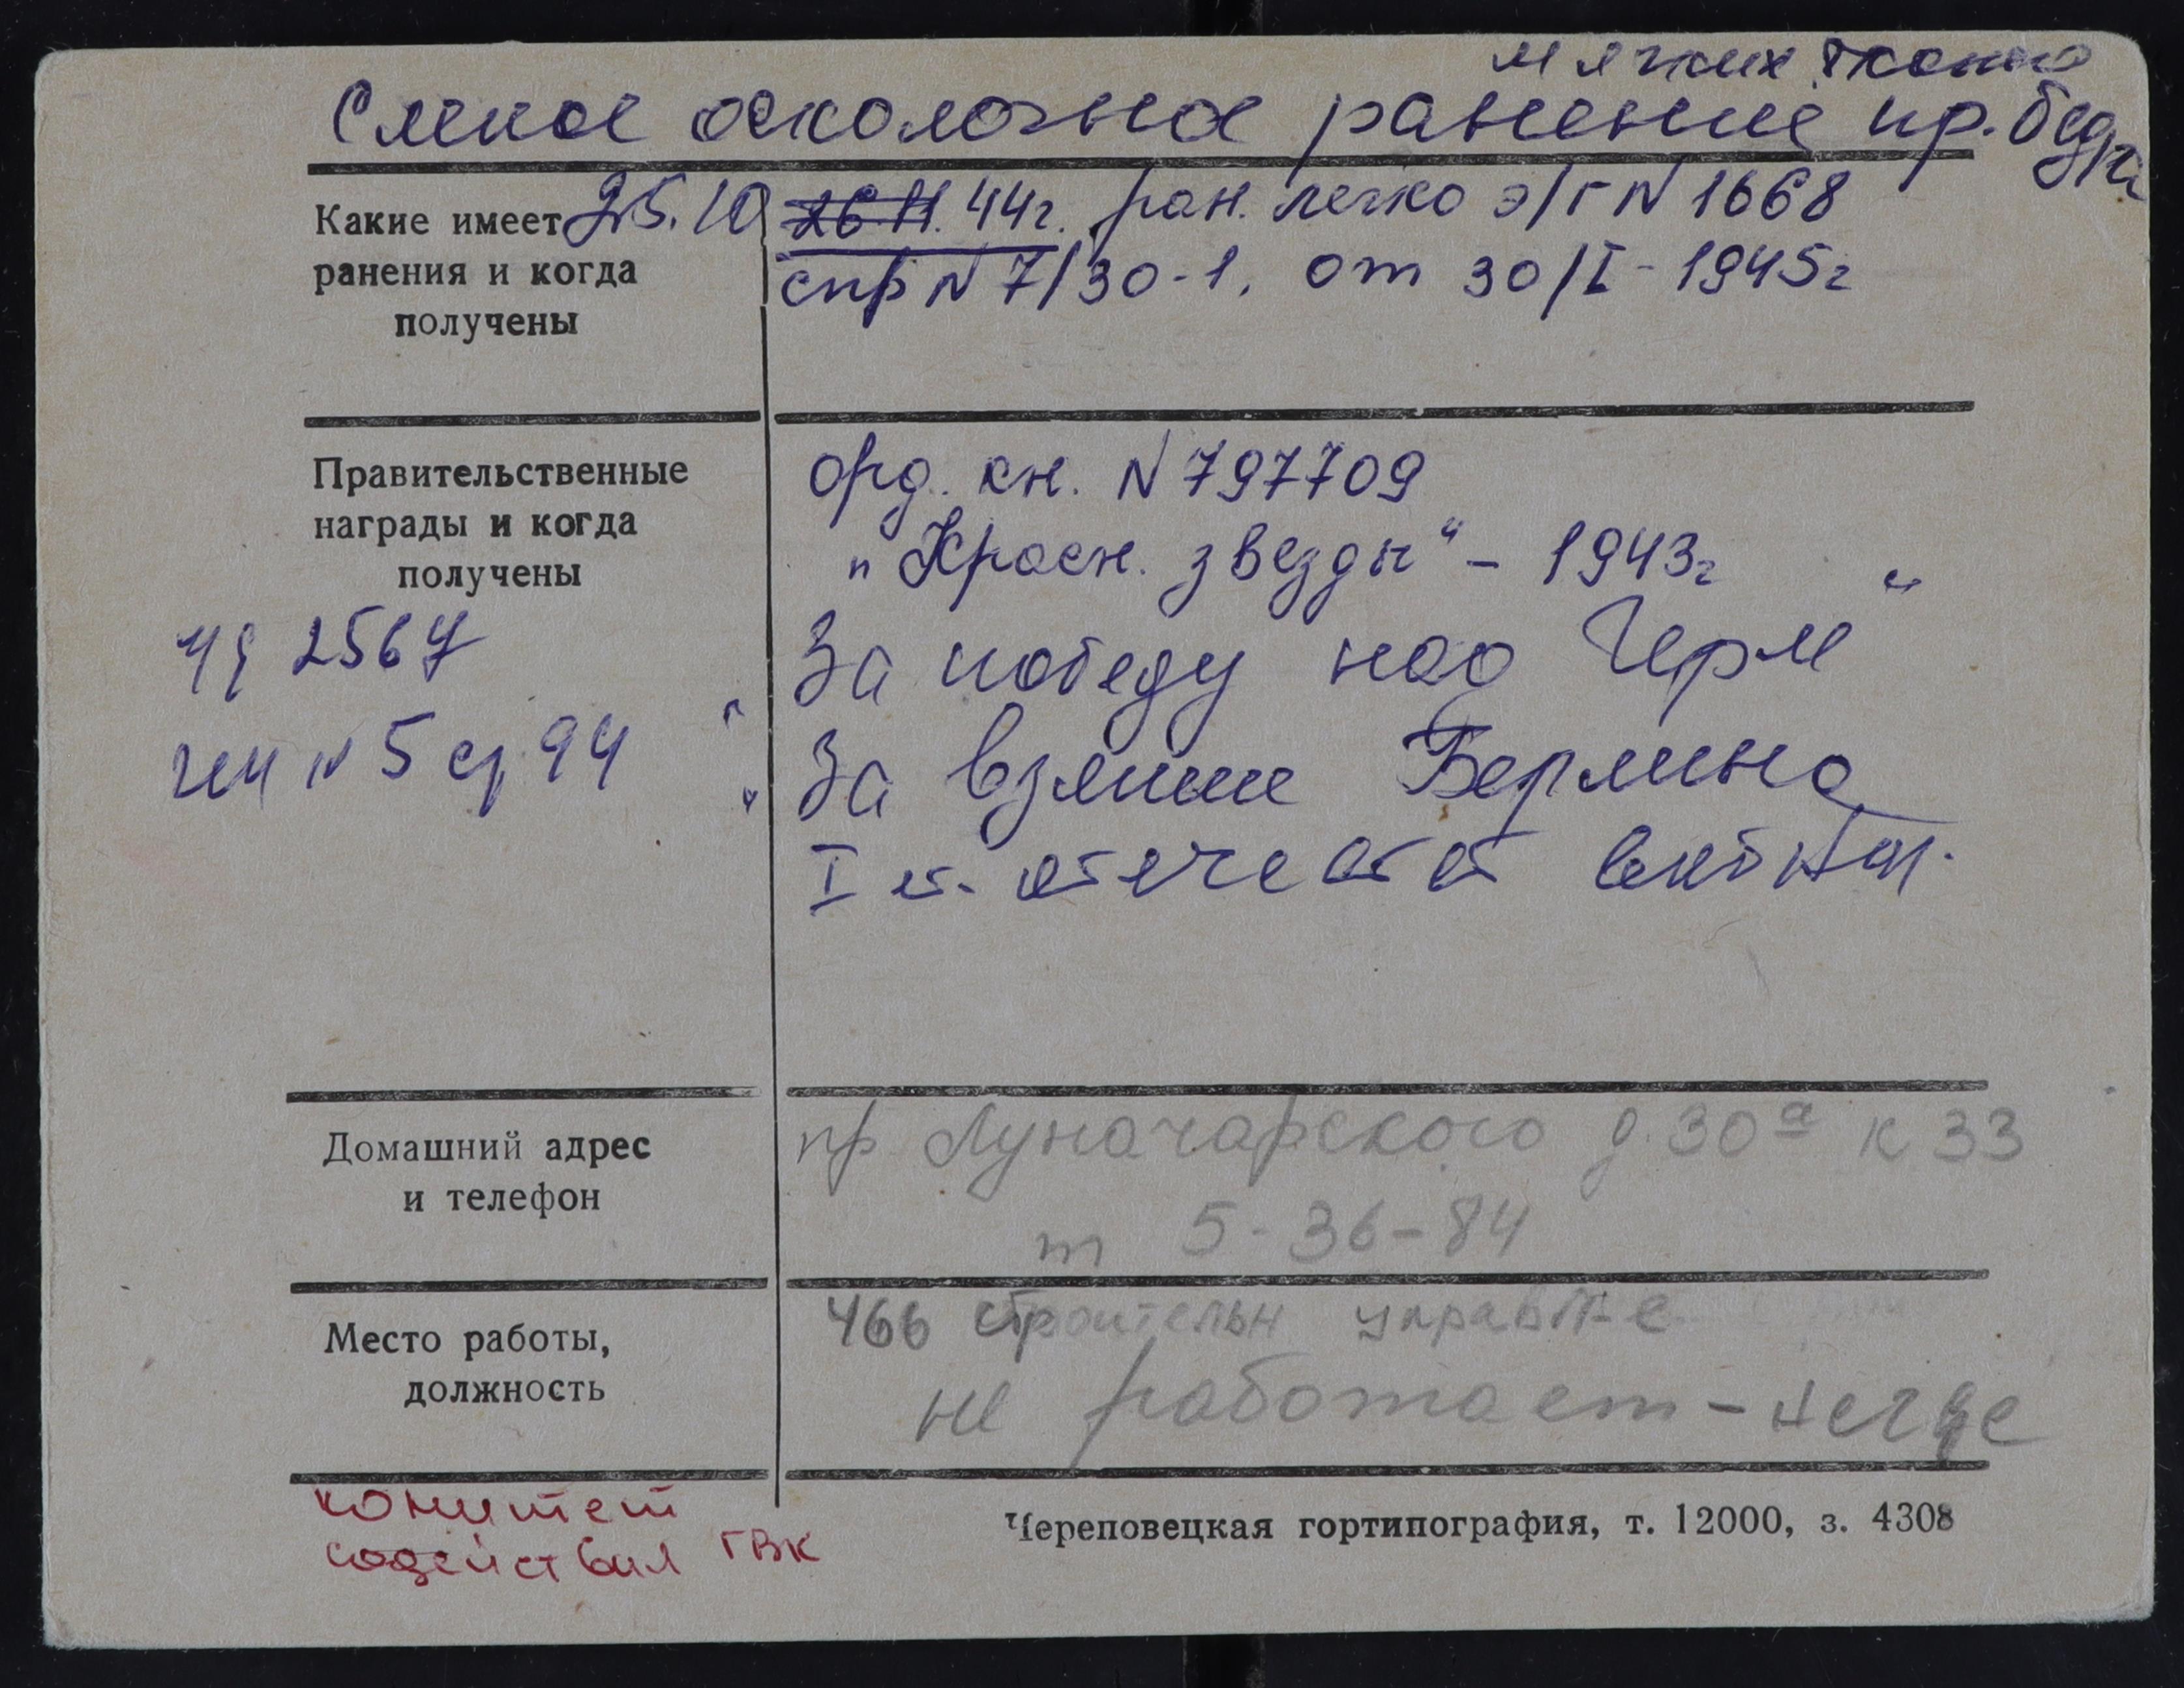 мягких ткань
Слепое осколочное ранение пр. бедра
Какие имеет ранения и когда получены
25.10 26.11. 44г. ран. легко э/г N 1668
спр N 7/30-1. от 30/I-1945г
Правительственные награды и когда получены
орд. кн. N 797709
"Красн. звезды" - 1943г
"За победу над Герм"
"За взятие Берлина
I ст. отечеств войны
2567
N 5 94
Домашний адрес и телефон
пр Луначарского д. 30а к 33
т 5-36-84
Место работы, должность
466 строительн управл-е
не работает - негде
комитет
содействия ГВК
Череповецкая гортипография, т. 12000, з. 4308